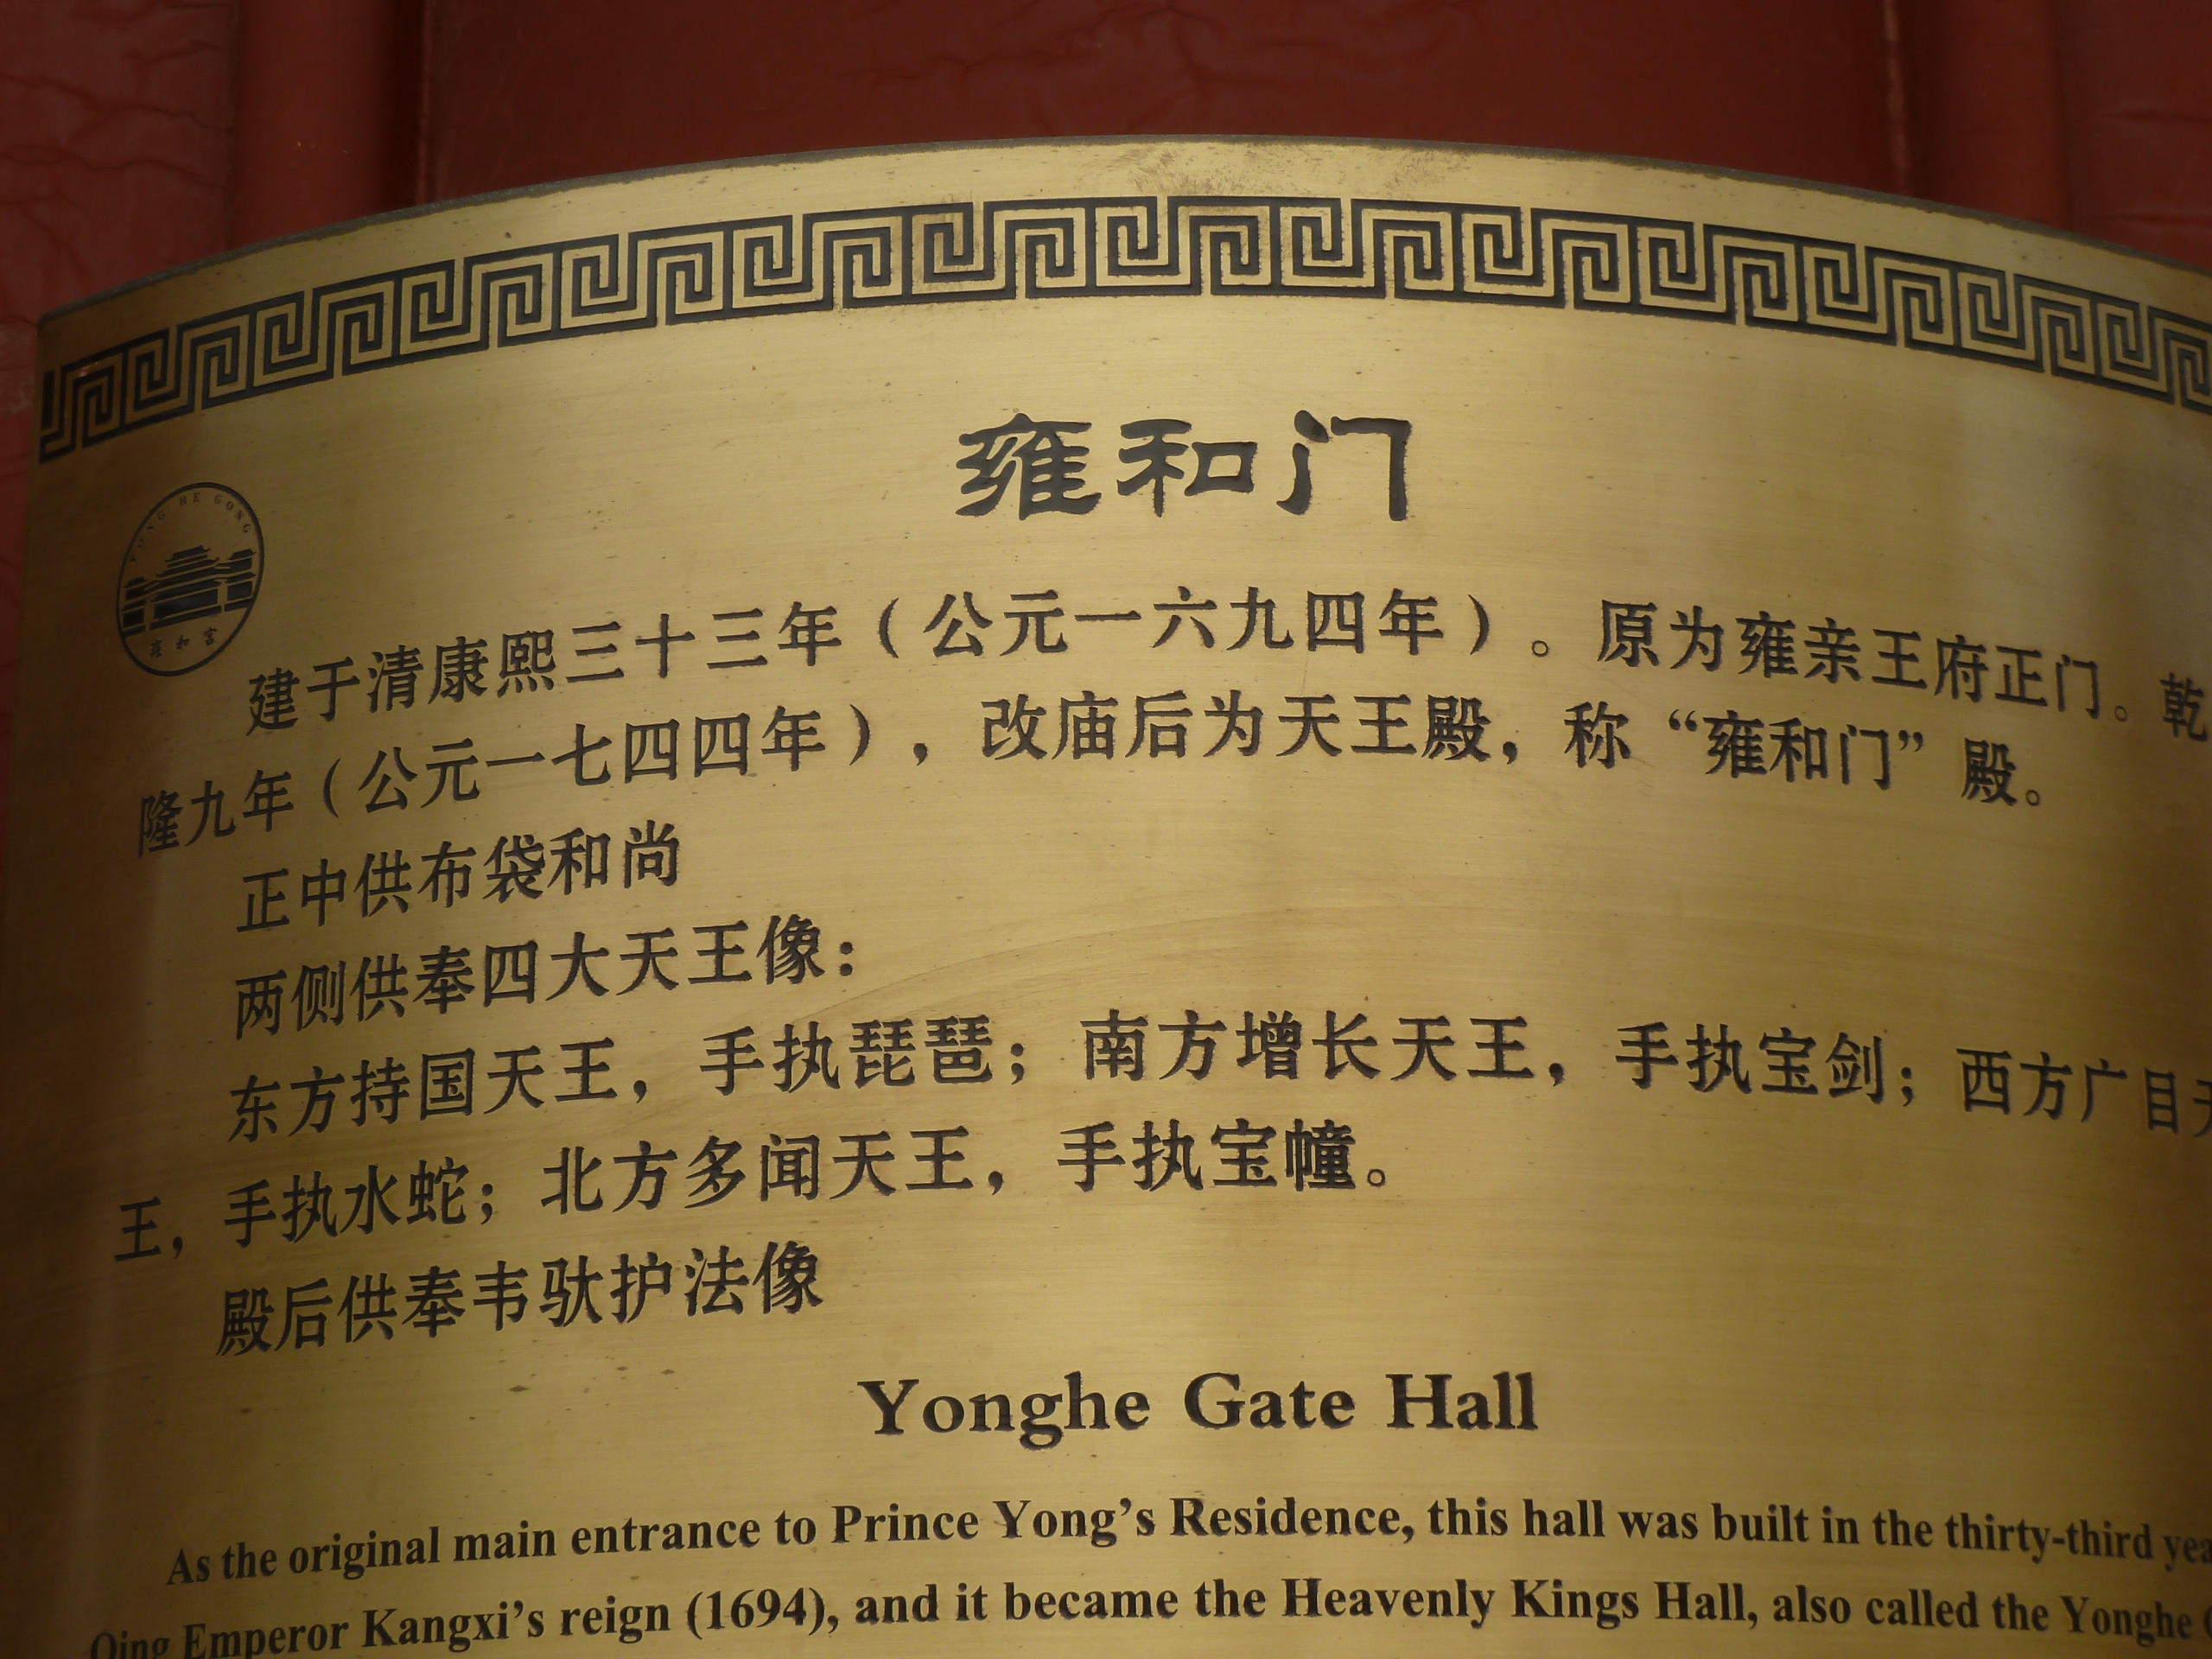 雍和门
YONG HE GONG
雍和宫
建于清康熙三十三年（公元一六九四年）。原为雍亲王府正门。乾
隆九年（公元一七四四年），改庙后为天王殿，称“雍和门”殿。
正中供布袋和尚
两侧供奉四大天王像：
东方持国天王，手执琵琶；南方增长天王，手执宝剑；西方广目天
王，手执水蛇；北方多闻天王，手执宝幢。
殿后供奉韦驮护法像
Yonghe Gate Hall
As the original main entrance to Prince Yong’s Residence, this hall was built in the thirty-third
Qing Emperor Kangxi’s reign (1694), and it became the Heavenly Kings Hall, also called the Yonghe